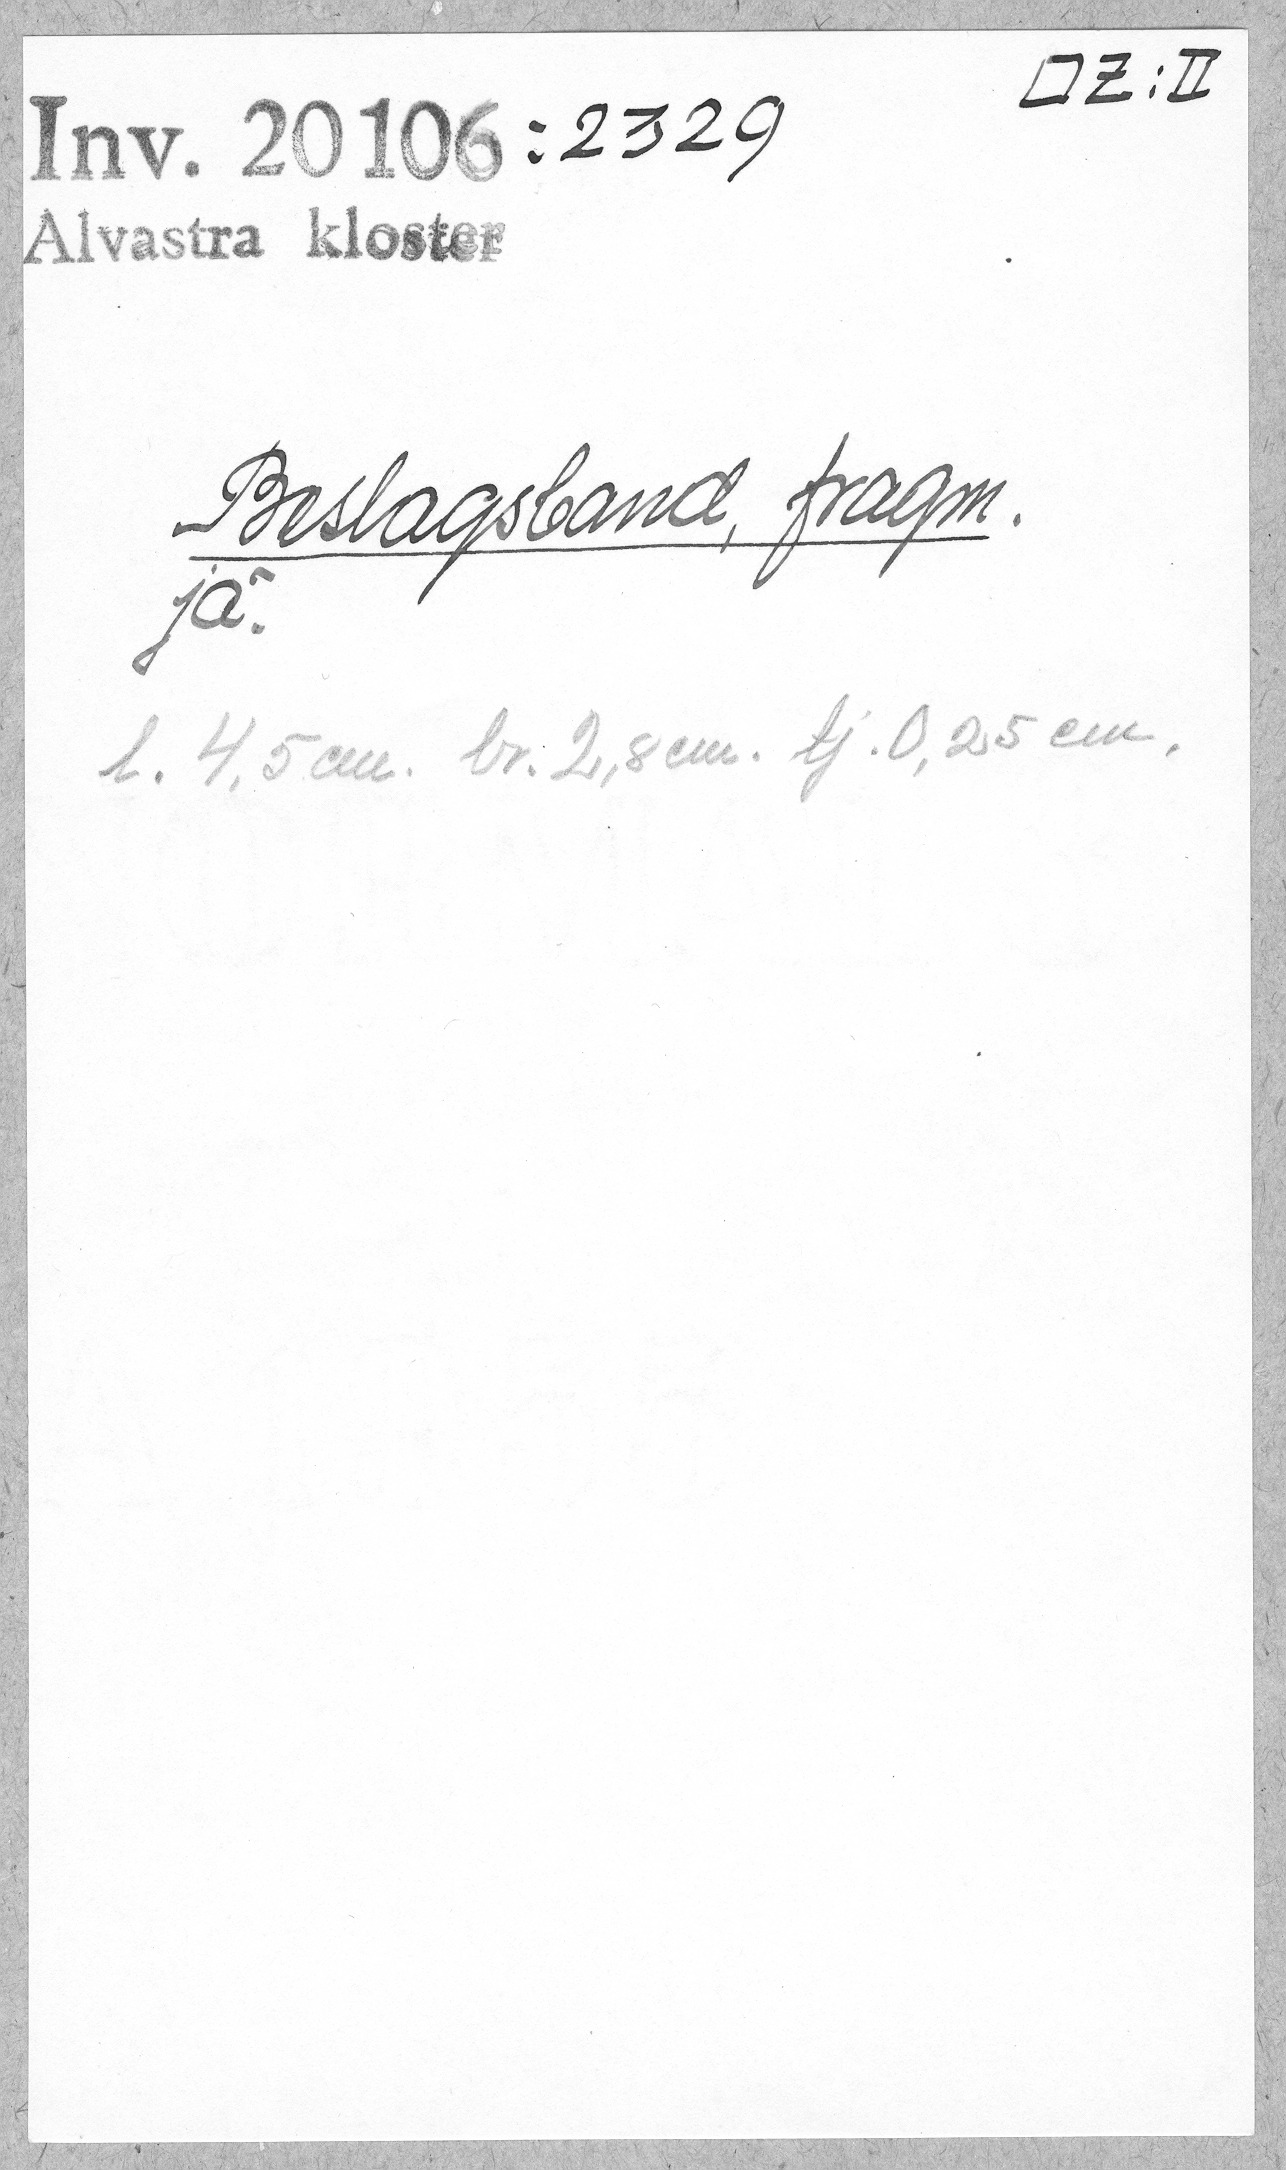 □Z:II
Inv. 20106:2329
Alvastra kloster
Beslagsband, fragm.
jä.
l. 4,5 cm. br. 2,8 cm. tj. 0,25 cm.